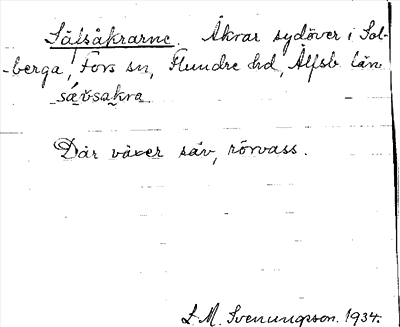 Sälsåkrarne. Åkrar sydöver i Sol-
-berga, Fors sn, Flundre hd, Älfsb. län
sä́v̄sakra
Där växer säv, rörvass.
L M. Svenungsson. 1934.